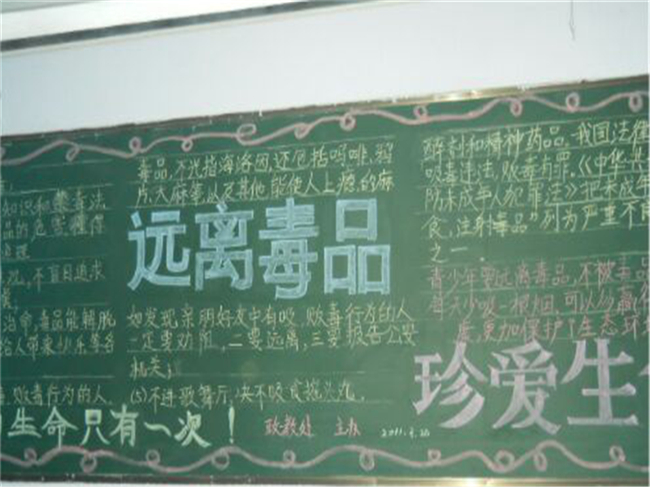 知识和禁毒法
品的危害懂得
道理
不盲目追求
治命,毒品能解脱
给人带来快乐等各
贩毒行为的人.
生命只有一次!
毒品,不光指海洛因,还包括吗啡、鸦
片、大麻等,以及其他,能使人上瘾的麻
远离毒品
如发现亲朋好友中有吸,贩毒行为的人
一定要劝阻,二要远离,三要报告公安
机关;
(5)不进歌舞厅,决不吸食摇头丸.
政教处 主办 2011.
醉剂和精神药品.我国法律
吸毒违法,贩毒有罪.《中华
防未成年人犯罪法》把未成年
食,注射毒品"列为严重不
之一.
青少年要远离毒品,不被毒品
每天少吸一根烟,可以
后更加保护了生态环境
珍爱生